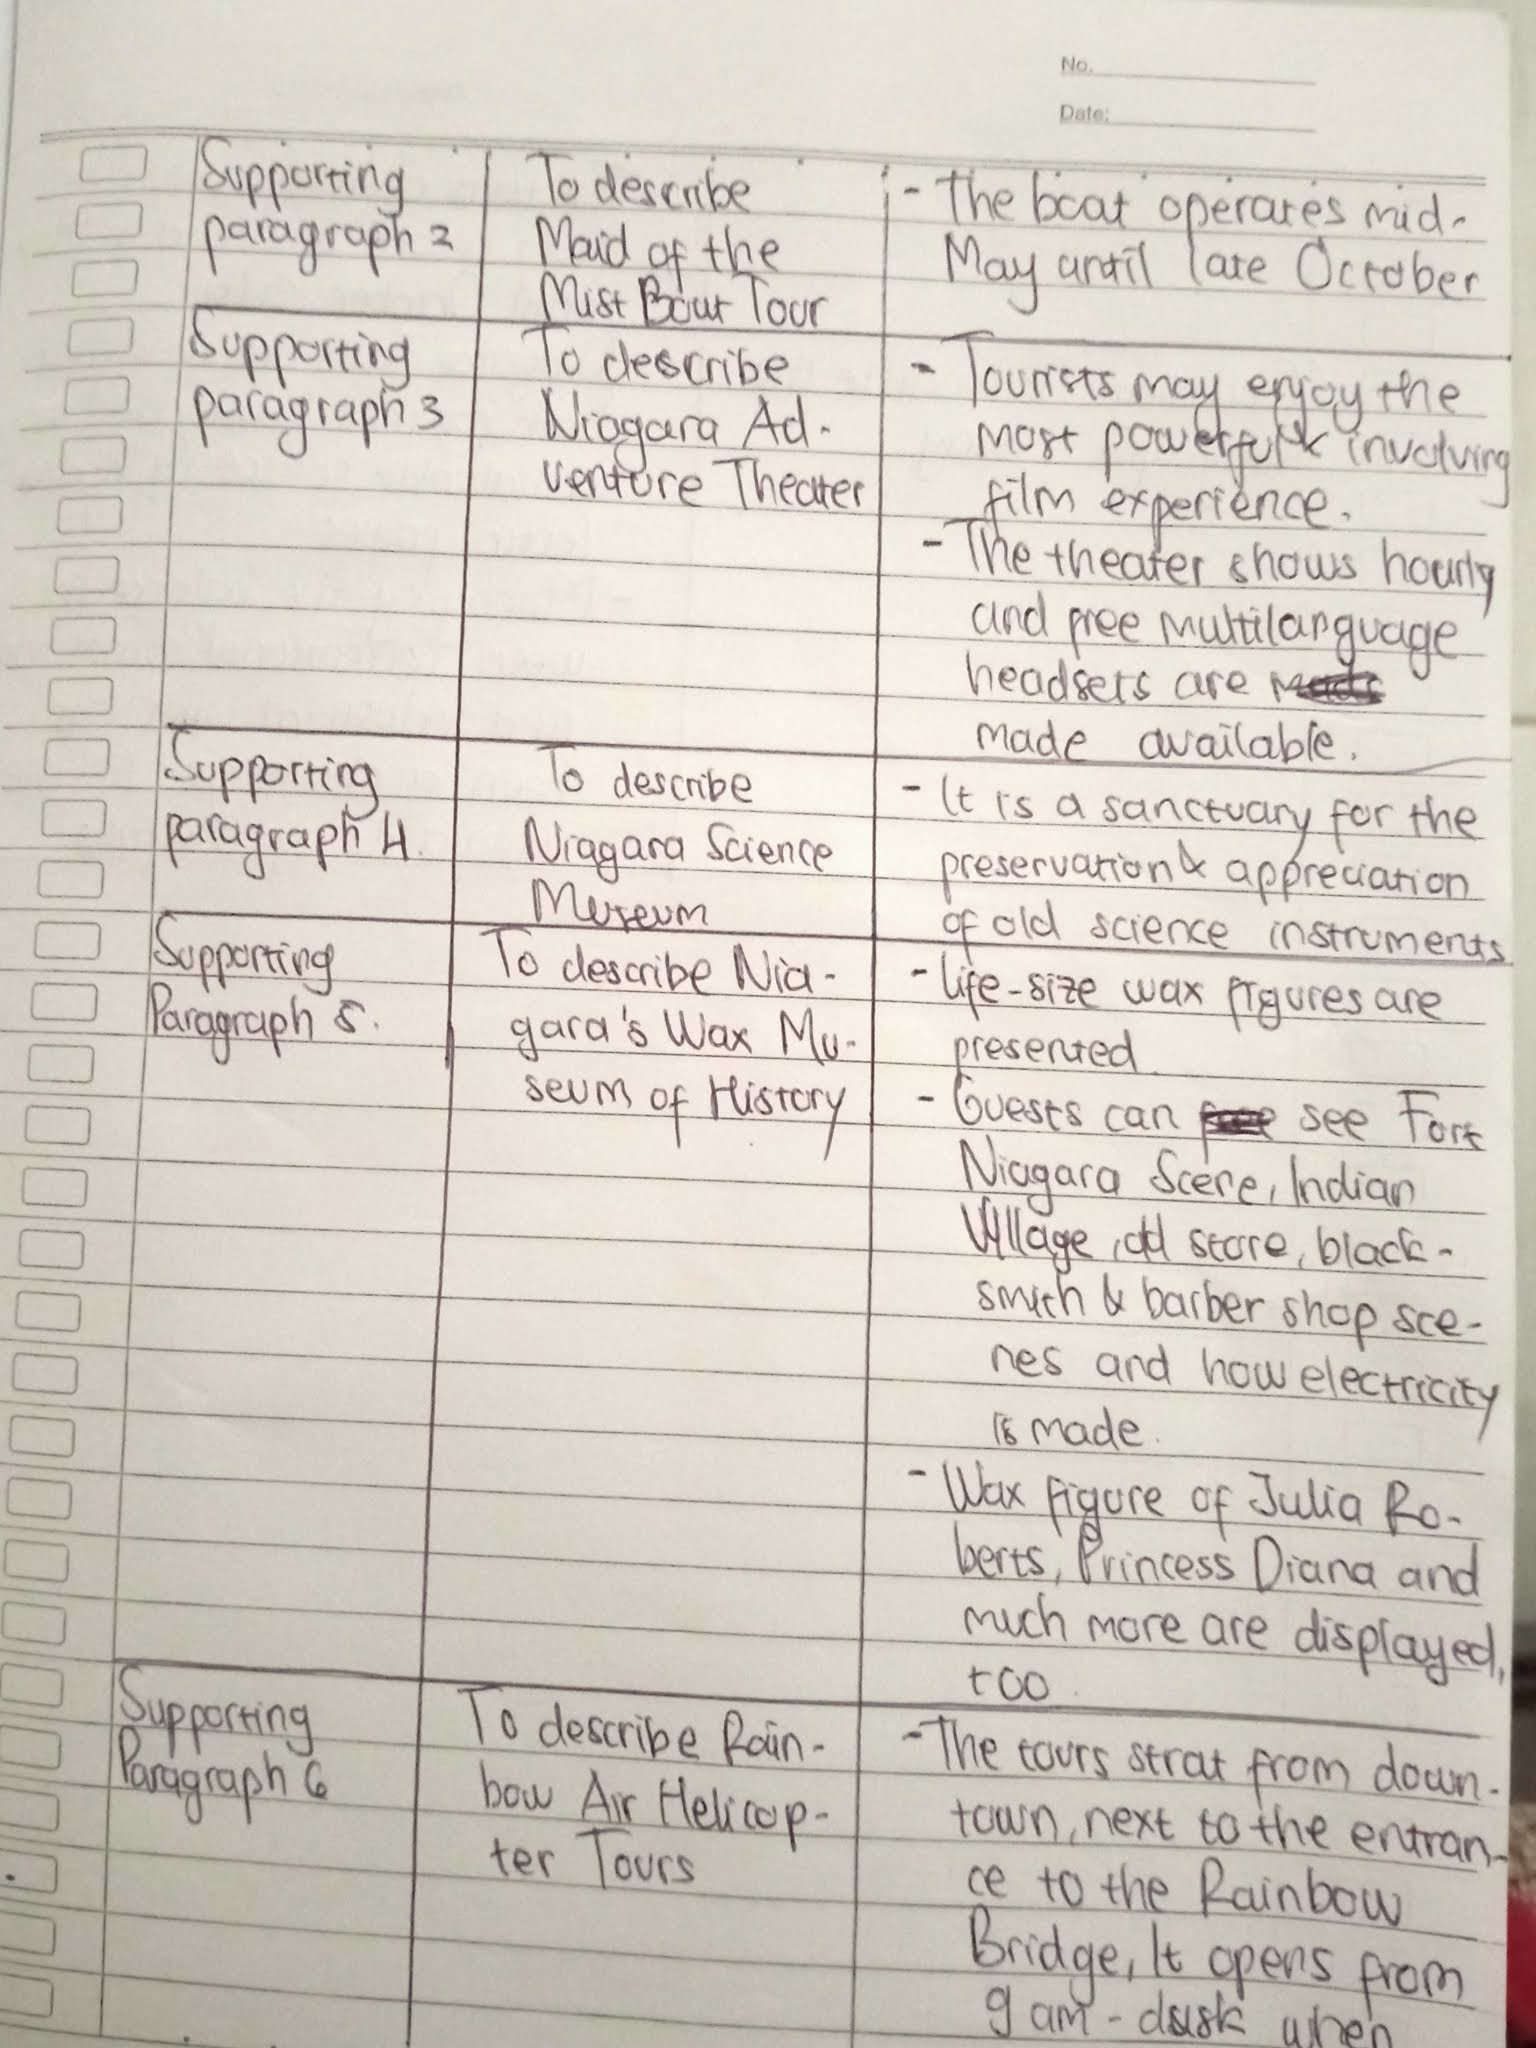 No.
Date:
Supporting
paragraph 2
To describe
Maid of the
Mist Boat Tour
- The boat operates mid-
May until late October
Supporting
paragraph 3
To describe
Niagara Ad-
venture Theater
- Tourists may enjoy the
most powerful & involving
film experience.
- The theater shows hourly
and free multilanguage
headsets are
made available.
Supporting
paragraph 4.
To describe
Niagara Science
Museum
- It is a sanctuary for the
preservation & appreciation
of old science instruments
Supporting
Paragraph 5.
To describe Nia-
gara's Wax Mu-
seum of History
- Life-size wax figures are
presented
- Guests can see Fort
Niagara Scene, Indian
Village, old store, black-
smith & barber shop sce-
nes and how electricity
is made.
- Wax figure of Julia Ro-
berts, Princess Diana and
much more are displayed,
too.
Supporting
Paragraph 6
To describe Rain-
bow Air Helicop-
ter Tours
- The tours strat from down-
town, next to the entran-
ce to the Rainbow
Bridge, It opens from
9 am - dusk when